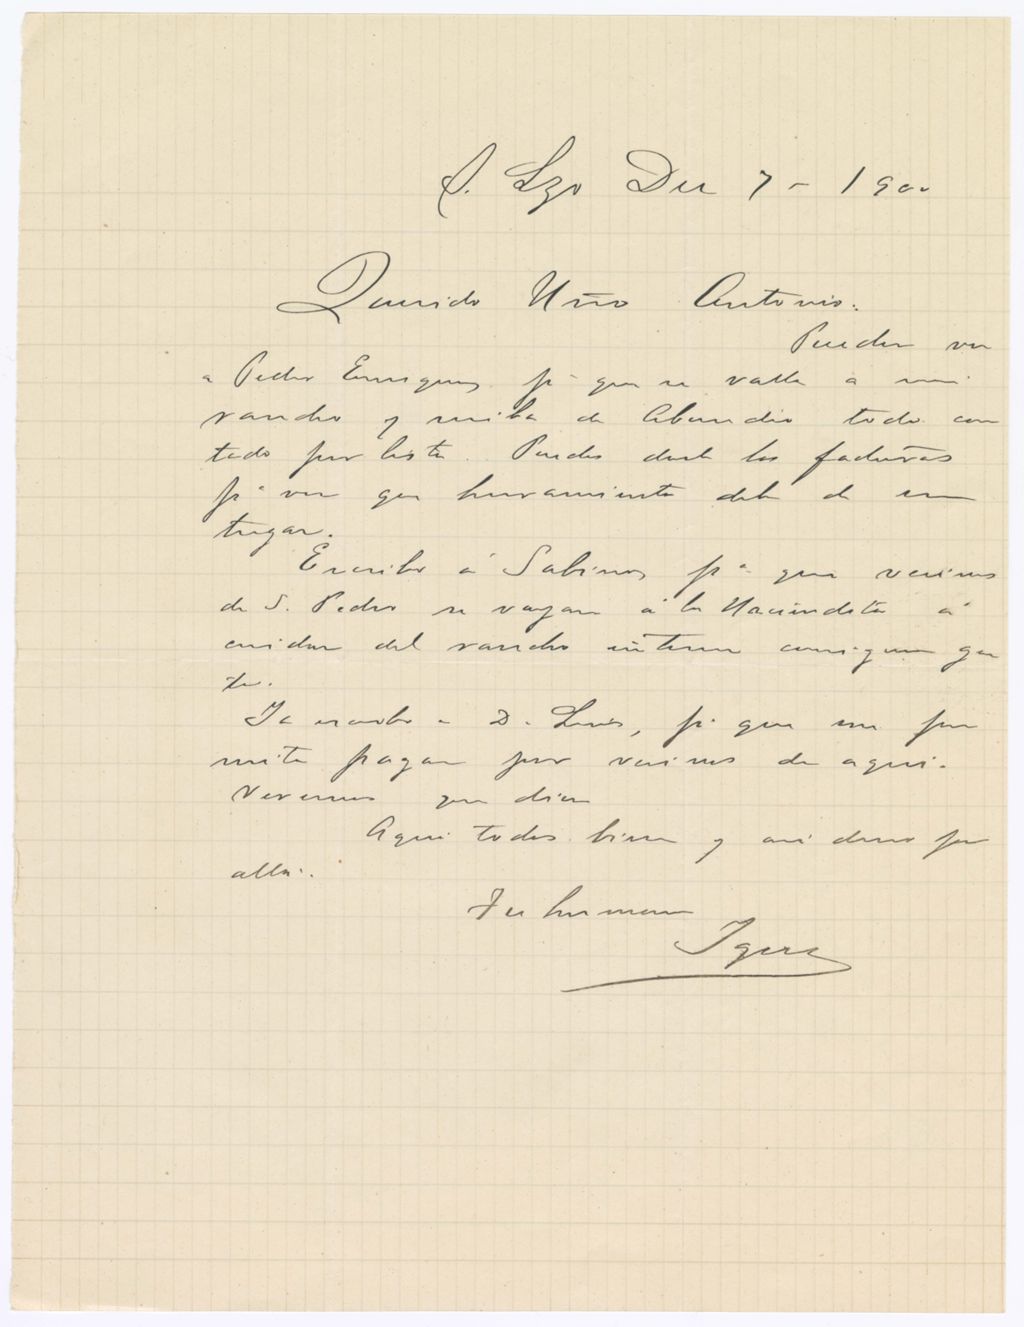 S. Lzo Dic 7 - 1900
Querido Hño Antonio:
Puedes ver
a Pedro Enriquez pª que se valla a mi
rancho y reciba de Abundio todo con
tado por lista. Puedes darle las facturas
pª ver que herramienta debe de en
tregar.
Escribo á Sabinas pª que vecinos
de S. Pedro se vayan á la Haciendita á
cuidar del rancho interin consiguen gen
te.
Ya escribo a D. Luis, pª que me per
mita pagar por vecinos de aqui.
Veremos que dice
Aqui todos bien y asi deseo por
alla.
Tu hermano